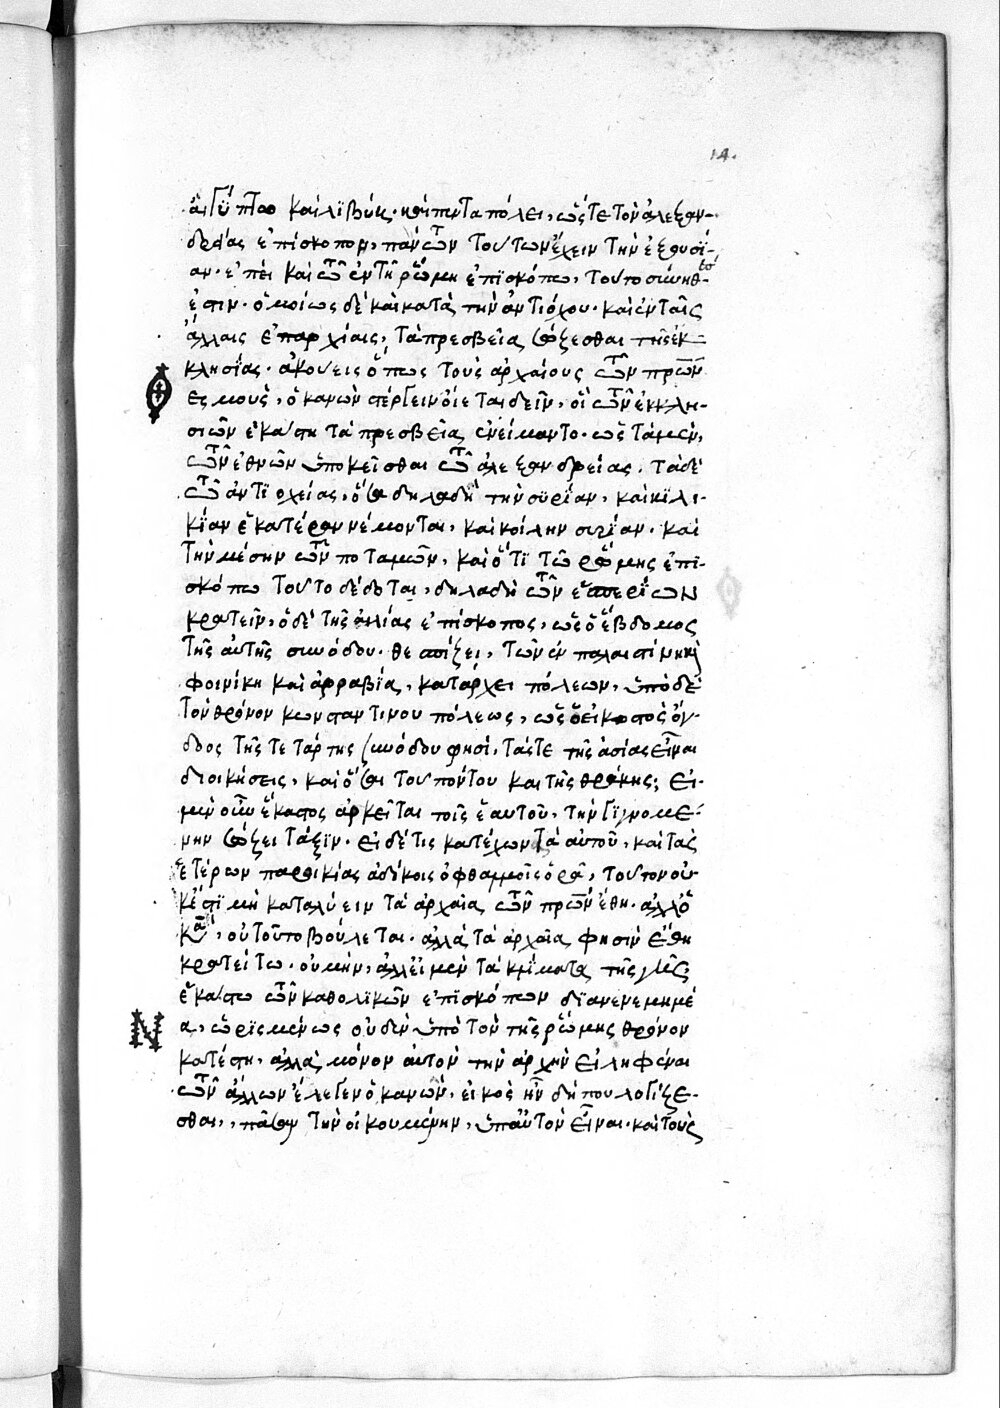 14.
Αἰγύπτου καὶ λιβύης· καὶ πενταπόλει, ὥστε τὸν ἀλεξαν-
δρείας ἐπίσκοπον, πάντων τούτων ἔχειν τὴν ἐξουσί-
αν· ἐπεὶ καὶ τῶ ἐν τῇ ῥώμῃ ἐπισκόπω, τοῦτο σύνηθές
ἐστιν· ὁμοίως δὲ καὶ κατὰ τὴν ἀντιόχου· καὶ ἐν ταῖς
ἄλλαις ἐπαρχίαις, τὰ πρεσβεῖα σώζεσθαι τῆς ἐκ-
κλησίας· ἀκούεις ὅπως τοὺς ἀρχαίους τῶν πρώτων
θεσμοὺς, ὁ κανὼν στέργειν οἴεται δεῖν, οἳ τῶν ἐκκλη-
σιῶν ἑκάστη τὰ πρεσβεῖα ἐνείμαντο· ὡς τὰ μὲν,
τῶν ἐθνῶν ὑποκεῖσθαι τῶ ἀλεξανδρείας, τὰ δὲ
τῶ ἀντιοχείας, ὅσα δηλαδὴ τὴν συρίαν, καὶ κιλι-
κίαν ἑκατέραν νέμονται, καὶ κοίλην συρίαν· καὶ
τὴν μέσην τῶν ποταμῶν, καὶ ὅτι τῶ ῥώμης ἐπι-
σκόπω τοῦτο δέδοται, δηλαδὴ τῶν ἑσπερίων
κρατεῖν, ὁ δὲ τῆς αἰλίας ἐπίσκοπος, ὡς ὁ ἕβδομος
τῆς αὐτῆς συνόδου θεσπίζει, τῶν ἐν παλαιστίνῃ καὶ
φοινίκη καὶ ἀρραβία, κατάρχει πόλεων, ὑπὸ δὲ
τὸν θρόνον κωνσταντινουπόλεως, ὡς ὁ εἰκοστὸς ὄγ-
δοος τῆς τετάρτης συνόδου φησὶ, τάς τε τῆς ἀσίας εἶναι
διοικήσεις, καὶ ὅσαι τοῦ πόντου καὶ τῆς θράκης; εἰ
μὲν οὖν ἕκαστος ἀρκεῖται τοῖς ἑαυτοῦ, τὴν γιγνομέ-
νην σώζει τάξιν· εἰ δέ τις κατέχων τὰ αὑτοῦ, καὶ τὰς
ἑτέρων παροικίας ἀδίκοις ὀφθαλμοῖς ὁρᾶ, τοῦτον οὐ-
κ ἔστι μὴ καταλύειν τὰ ἀρχαῖα τῶν πρώτων ἔθη· ἀλλ' ὁ
κανὼν, οὐ τοῦτο βούλεται· ἀλλὰ τὰ ἀρχαῖα φησὶν ἔθη
κρατείτω· οὐ μὴν, ἀλλ' εἰ μὲν τὰ κλίματα τῆς γῆς
ἑκάστω τῶν καθολικῶν ἐπισκόπων διανενεμημέ
α, ὡρισμένως οὐδὲν ὑπὸ τὸν τῆς ῥώμης θρόνον
κατέστη, ἀλλὰ μόνον αὐτὸν τὴν ἀρχὴν εἰληφέναι
τῶν ἄλλων ἔλεγεν ὁ κανὼν, εἰκὸς ἦν δήπου λογίζε-
σθαι, πᾶσαν τὴν οἰκουμένην, ὑπ' αὐτὸν εἶναι· καὶ τοὺς